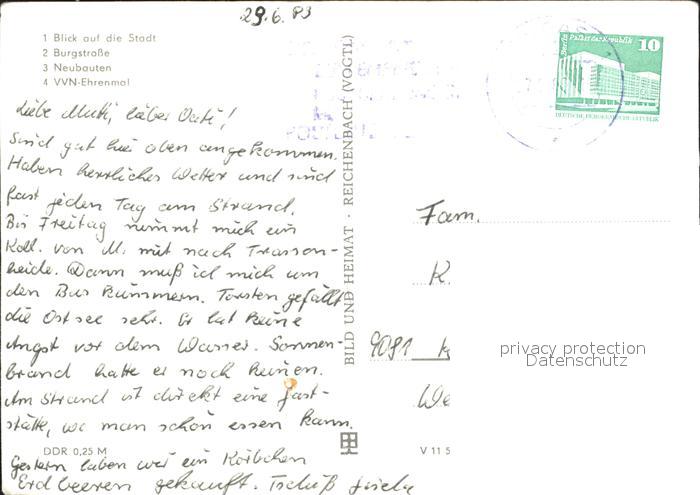 29.6.83
1 Blick auf die Stadt
2 Burgstraße
3 Neubauten
4 VVN-Ehrenmal
Liebe Mutti, lieber Vati!
Sind gut hier oben angekommen.
Haben herrliches Wetter und sind
fast jeden Tag am Strand.
Bis Freitag nimmt mich ein
Koll. von M. mit nach Trassen-
heide. Dann muß ich mich um
den Bus kümmern. Torsten gefällt
die Ostsee sehr. Er hat keine
Angst vor dem Wasser. Sonnen-
brand hatte er noch keinen.
Am Strand ist direkt eine Gast-
stätte, wo man schön essen kann.
DDR 0,25 M
Gestern haben wir ein Körbchen
Erdbeeren gekauft. Tschüß Gisela
BILD UND HEIMAT · REICHENBACH (VOGTL)
V 11 5
Berlin Palast der Republik
10
DEUTSCHE DEMOKRATISCHE REPUBLIK
Fam.
K.
9081 K
We
privacy protection
Datenschutz